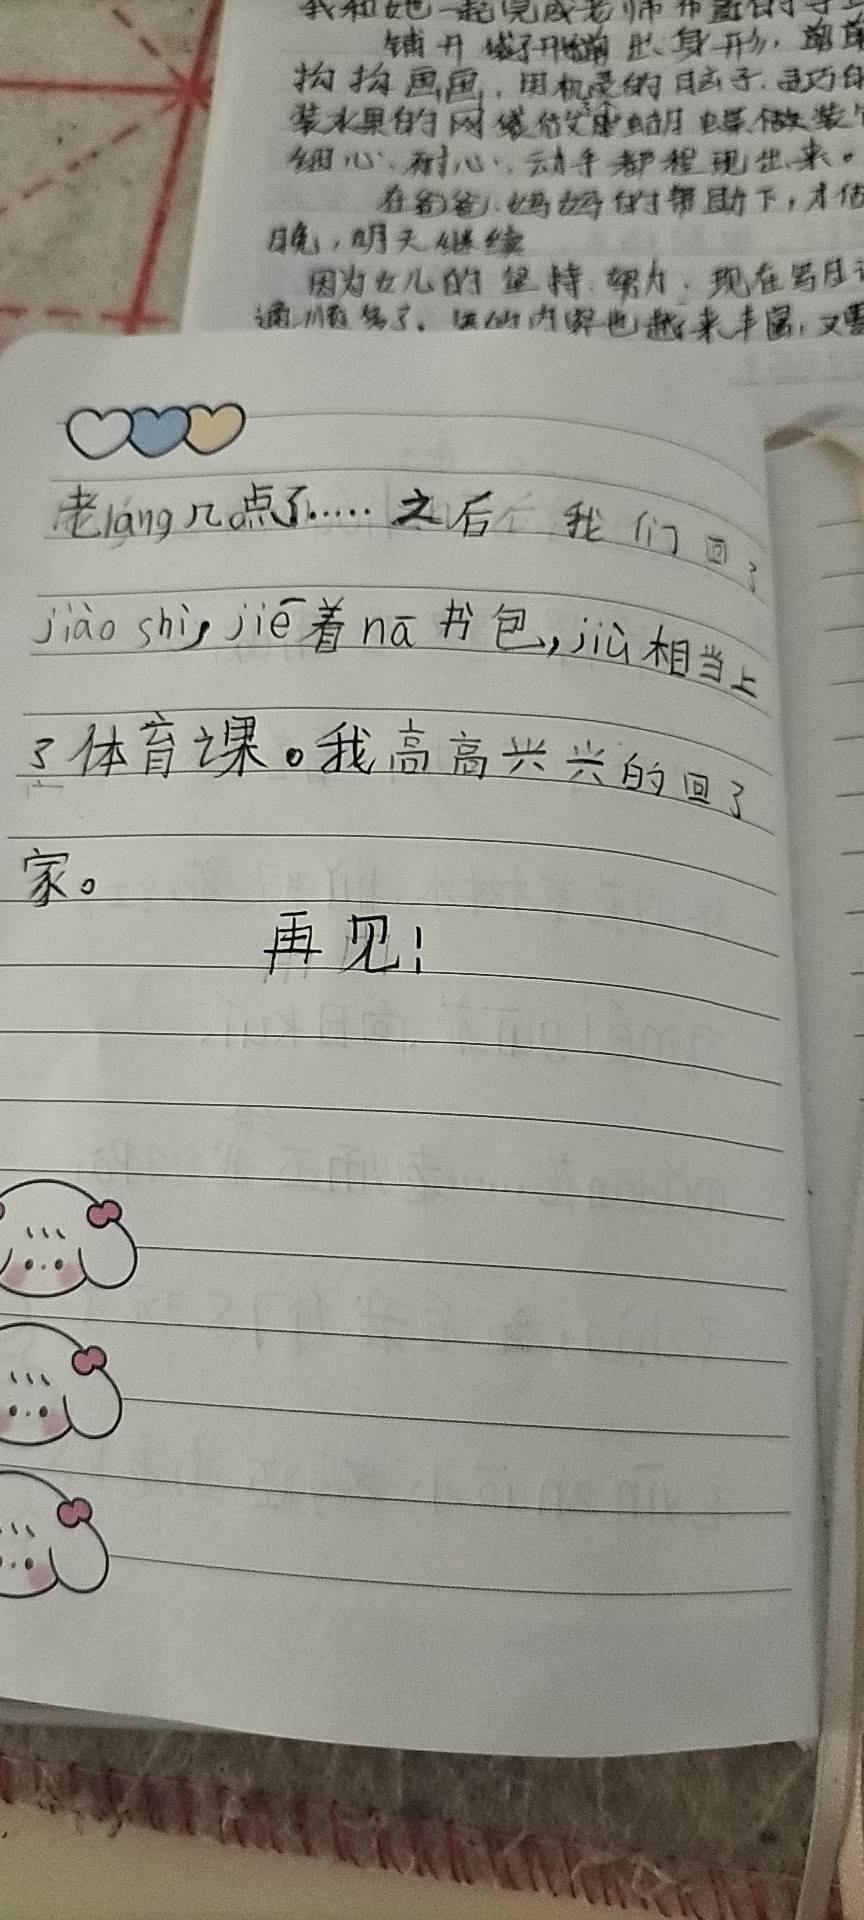 我和她一起完成老师布置的
铺开 出身形,
构构画画,用机灵的脑子.灵巧
装水果的网袋做 蝴蝶做装
细心.耐心.动手都程现出来。
在爸爸.妈妈的帮助下,才
晚,明天继续
因为女儿的坚持.努力.现在写日
通顺多了. 内容也越来丰富,又
老láng几点了……之后 我们回了
jiào shì,jiē着nā书包,jiù相当上
了体育课。我高高兴兴的回了
家。
再见!